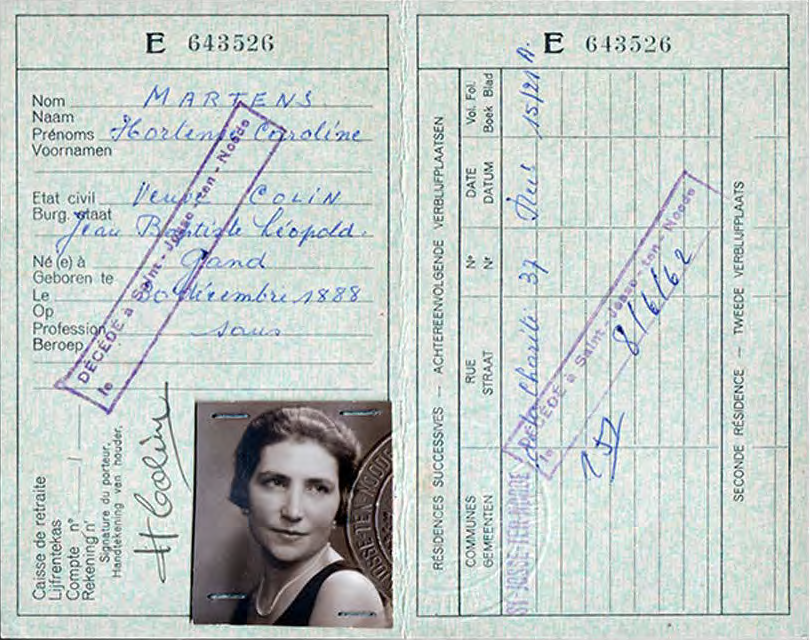 E 643526
Nom
Naam
MARTENS
Prénoms
Voornamen
Hortense Caroline
Etat civil
Burg. staat
Veuve COLIN
Jean Baptiste Léopold.
Né (e) à
Geboren te
Gand
Le
Op
30 décembre 1888
Profession
Beroep
sans
DÉCÉDÉ à Saint-Josse-ten-Noode
le
Caisse de retraite
Lijfrentekas
Compte n°
Rekening n°
Signature du porteur,
Handtekening van houder,
H Colin
E 643526
RÉSIDENCES SUCCESSIVES — ACHTEREENVOLGENDE VERBLIJFPLAATSEN
COMMUNES
GEMEENTEN
RUE
STRAAT
N°
Nr
DATE
DATUM
Vol. Fol.
Boek Blad
ST-JOSSE-TEN-NOODE
de la Charité 37
15/21 A.
DÉCÉDÉ à Saint-Josse-ten-Noode
le 8/6/62
SECONDE RÉSIDENCE — TWEEDE VERBLIJFPLAATS